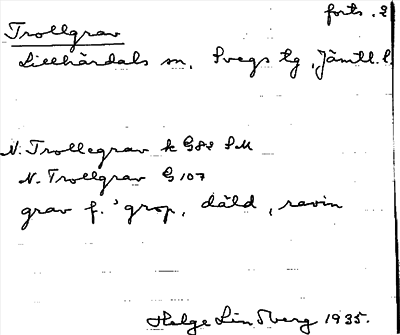 forts. 2
Trollgrav
Lillhärdals sn, Svegs tg, Jämtl. l.
N. Trollegrav k G82 SM
N. Trollgrav G107
grav f. 'grop, däld, ravin
Helge Lindberg 1935.